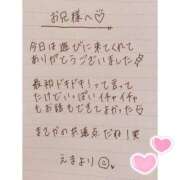 お兄様へ♡
今日は遊びに来てくれて
ありがとうございました
最初ドキドキ！って言って
たけどいっぱいイチャイチャ
もお話もできてよかった
まさかの共通点だね！笑
えまより☺